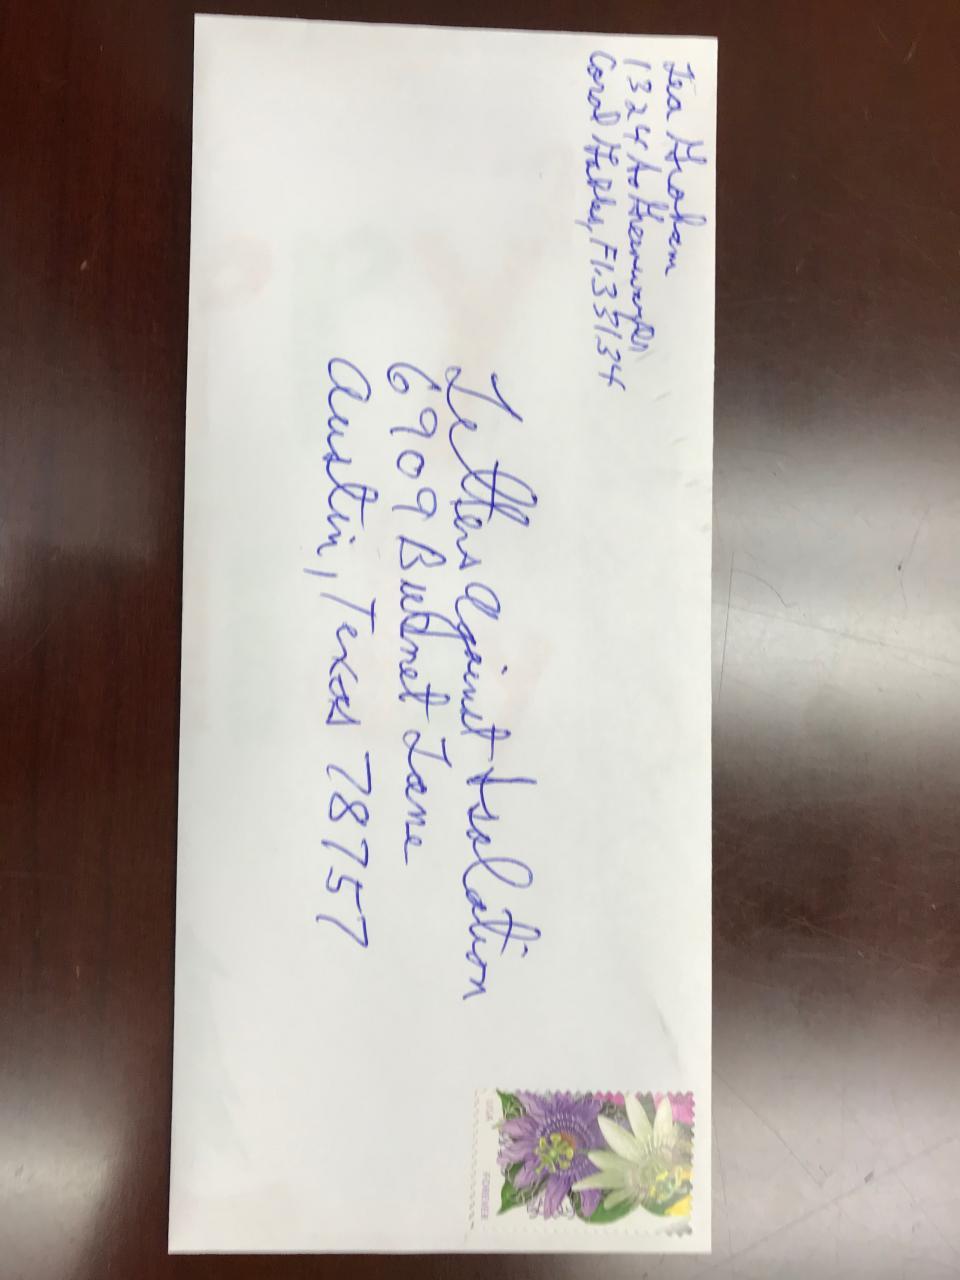 Lea Graham
1324 So Greenway Dr
Coral Gables, Fl. 33134
Letters Against Isolation
6909 Burnet Lane
Austin, Texas 78757
USA
FOREVER